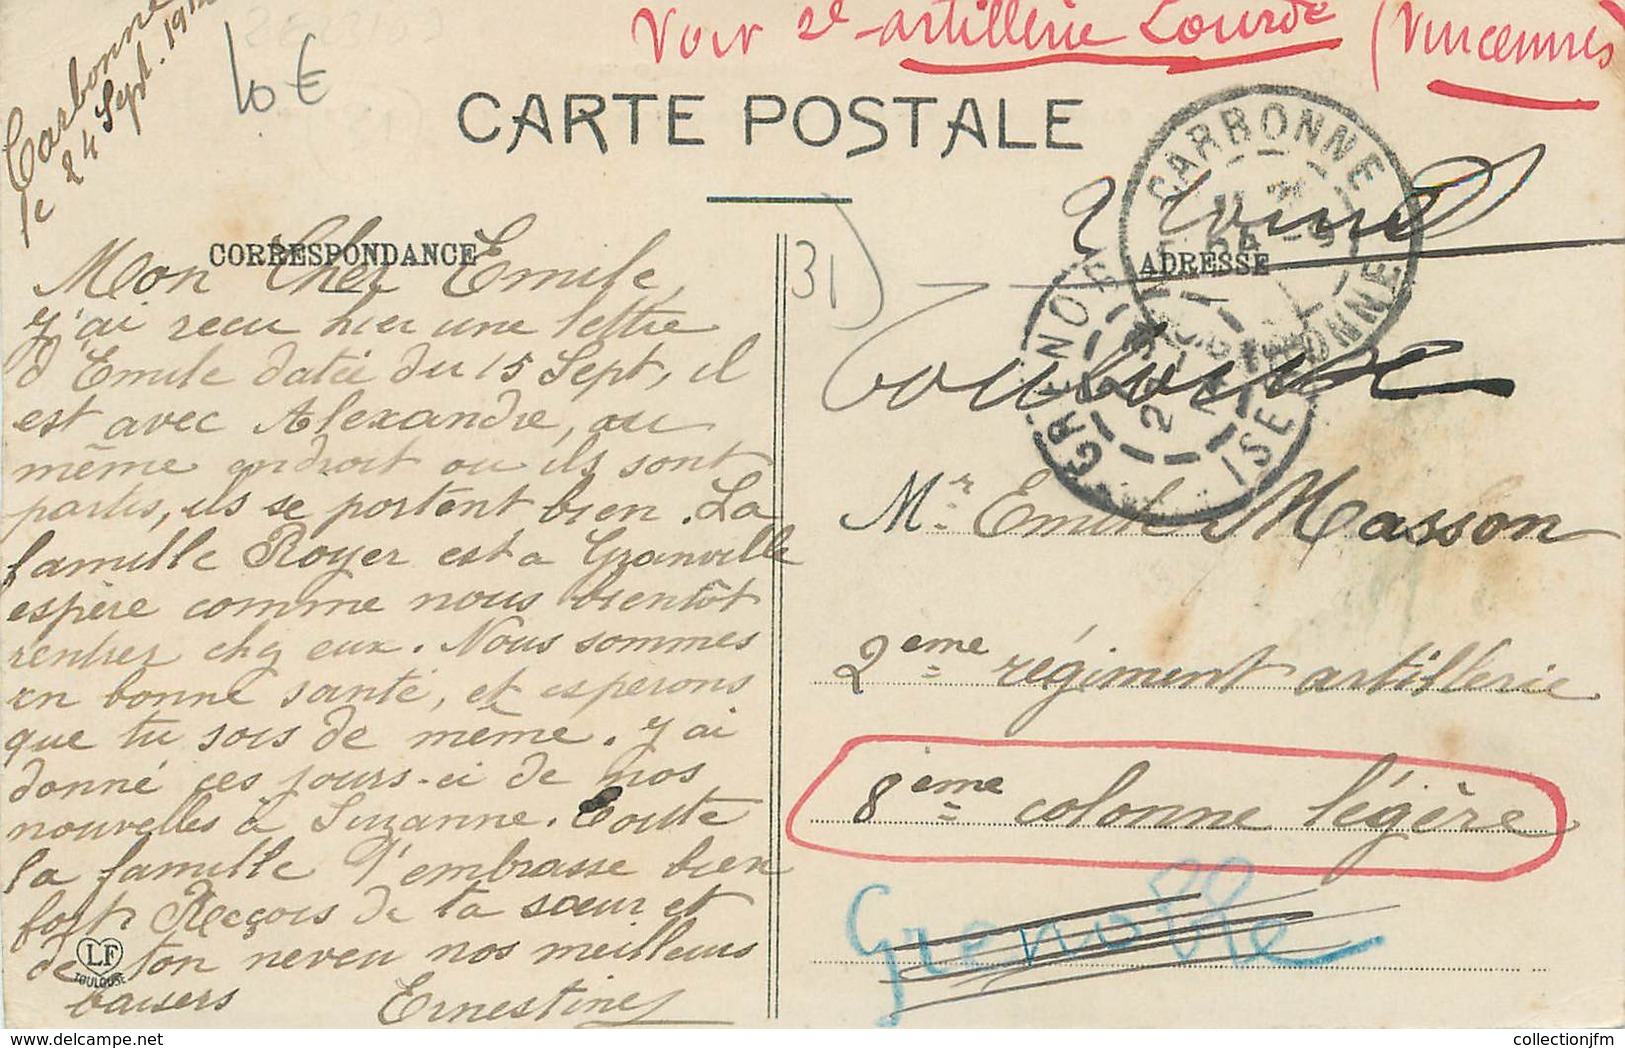 Voir 2e artillerie Lourde (Vincennes)
Carbonne
le 24 Sept. 1914
10 €
CARTE POSTALE
CORRESPONDANCE
ADRESSE
31)
CARBONNE
GARONNE
GRENOBLE
ISERE
Mon Cher Emile,
J'ai recu hier une lettre
d'Emile datée du 15 Sept, il
est avec Alexandre, au
même endroit ou ils sont
partis, ils se portent bien. La
famille Royer est a Granville
espère comme nous bientôt
rentrer chez eux. Nous sommes
en bonne santé, et espérons
que tu sois de même. J'ai
donné ces jours-ci de nos
nouvelles à Suzanne. Toute
la famille t'embrasse bien
fort. Reçois de ta sœur et
de ton neveu nos meilleurs
baisers Ernestine
LF
TOULOUSE
Toulouse
Mr. Emile Masson
2eme régiment artillerie
8ième colonne légère
Grenoble
collectionjfm